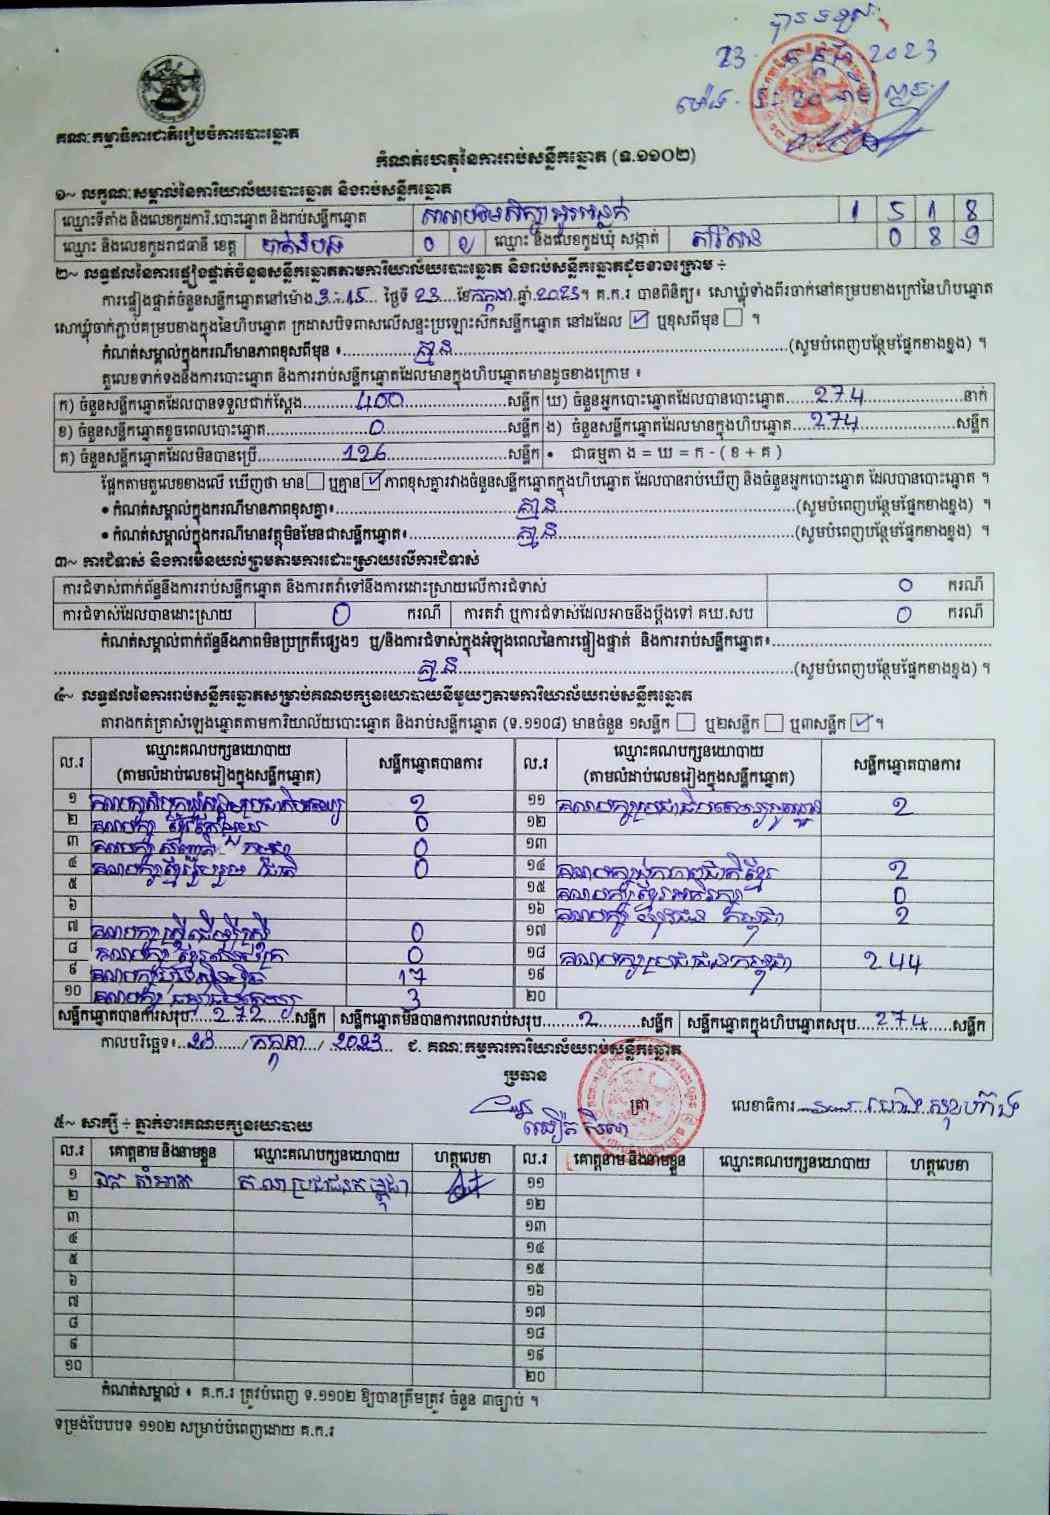 បានទទួល
23 កក្កដា 2023
គណៈកម្មាធិការជាតិរៀបចំការបោះឆ្នោត
កំណត់ហេតុនៃការរាប់សន្លឹកឆ្នោត (ទ.១១០២)
១~ លក្ខណៈសម្គាល់នៃការិយាល័យបោះឆ្នោត និងរាប់សន្លឹកឆ្នោត
ឈ្មោះទីតាំង និងលេខកូដការិ.បោះឆ្នោត និងរាប់សន្លឹកឆ្នោត 1 5 1 8
ឈ្មោះ និងលេខកូដរាជធានី ខេត្ត បាត់ដំបង 0 ២ ឈ្មោះ និងលេខកូដឃុំ សង្កាត់ 0 8 9
២~ លទ្ធផលនៃការផ្ទៀងផ្ទាត់ចំនួនសន្លឹកឆ្នោតតាមការិយាល័យបោះឆ្នោត និងរាប់សន្លឹកឆ្នោតដូចខាងក្រោម ÷
ការផ្ទៀងផ្ទាត់ចំនួនសន្លឹកឆ្នោតនៅម៉ោង 3:15 ថ្ងៃទី 23 ខែ កក្កដា ឆ្នាំ 2023។ គ.ក.រ បានពិនិត្យ៖ សោឃ្លុំទាំងពីរចាក់នៅគម្របខាងក្រៅនៃហិបឆ្នោត
សោឃ្លុំចាក់ភ្ជាប់គម្របខាងក្នុងនៃហិបឆ្នោត ក្រដាសបិទពាសលើសន្ទះប្រឡោះសឹកសន្លឹកឆ្នោត នៅដដែល ☑ ឬខុសពីមុន ☐ ។
កំណត់សម្គាល់ក្នុងករណីមានភាពខុសពីមុន ៖ គ្មាន (សូមបំពេញបន្ថែមផ្នែកខាងខ្នង) ។
តួលេខទាក់ទងនឹងការបោះឆ្នោត និងការរាប់សន្លឹកឆ្នោតដែលមានក្នុងហិបឆ្នោតមានដូចខាងក្រោម ៖
ក) ចំនួនសន្លឹកឆ្នោតដែលបានទទួលជាក់ស្តែង 400 សន្លឹក ឃ) ចំនួនអ្នកបោះឆ្នោតដែលបានបោះឆ្នោត 274 នាក់
ខ) ចំនួនសន្លឹកឆ្នោតខូចពេលបោះឆ្នោត 0 សន្លឹក ង) ចំនួនសន្លឹកឆ្នោតដែលមានក្នុងហិបឆ្នោត 274 សន្លឹក
គ) ចំនួនសន្លឹកឆ្នោតដែលមិនបានប្រើ 126 សន្លឹក • ជាធម្មតា ង = ឃ = ក - ( ខ + គ )
ផ្អែកតាមតួលេខខាងលើ ឃើញថា មាន ☐ ឬគ្មាន ☑ ភាពខុសគ្នារវាងចំនួនសន្លឹកឆ្នោតក្នុងហិបឆ្នោត ដែលបានរាប់ឃើញ និងចំនួនអ្នកបោះឆ្នោត ដែលបានបោះឆ្នោត ។
• កំណត់សម្គាល់ក្នុងករណីមានភាពខុសគ្នា៖ គ្មាន (សូមបំពេញបន្ថែមផ្នែកខាងខ្នង) ។
• កំណត់សម្គាល់ក្នុងករណីមានវត្ថុមិនមែនជាសន្លឹកឆ្នោត៖ គ្មាន (សូមបំពេញបន្ថែមផ្នែកខាងខ្នង) ។
៣~ ការជំទាស់ និងការមិនយល់ព្រមតាមការដោះស្រាយលើការជំទាស់
ការជំទាស់ពាក់ព័ន្ធនឹងការរាប់សន្លឹកឆ្នោត និងការតវ៉ាទៅនឹងការដោះស្រាយលើការជំទាស់ 0 ករណី
ការជំទាស់ដែលបានដោះស្រាយ 0 ករណី ការតវ៉ា ឬការជំទាស់ដែលអាចនឹងប្តឹងទៅ គឃ.សប 0 ករណី
កំណត់សម្គាល់ពាក់ព័ន្ធនឹងភាពមិនប្រក្រតីផ្សេងៗ ឬ/និងការជំទាស់ក្នុងអំឡុងពេលនៃការផ្ទៀងផ្ទាត់ និងការរាប់សន្លឹកឆ្នោត៖
គ្មាន (សូមបំពេញបន្ថែមផ្នែកខាងខ្នង) ។
៤~ លទ្ធផលនៃការរាប់សន្លឹកឆ្នោតសម្រាប់គណបក្សនយោបាយនីមួយៗតាមការិយាល័យរាប់សន្លឹកឆ្នោត
តារាងកត់ត្រាសំឡេងឆ្នោតតាមការិយាល័យបោះឆ្នោត និងរាប់សន្លឹកឆ្នោត (ទ.១១០៨) មានចំនួន ១សន្លឹក ☐ ឬ២សន្លឹក ☐ ឬ៣សន្លឹក ☑ ។
ល.រ ឈ្មោះគណបក្សនយោបាយ (តាមលំដាប់លេខរៀងក្នុងសន្លឹកឆ្នោត) សន្លឹកឆ្នោតបានការ ល.រ ឈ្មោះគណបក្សនយោបាយ (តាមលំដាប់លេខរៀងក្នុងសន្លឹកឆ្នោត) សន្លឹកឆ្នោតបានការ
១ គណបក្ស 2 ១១ គណបក្ស 2
២ គណបក្ស 0 ១២
៣ គណបក្ស 0 ១៣
៤ គណបក្សខ្មែររួបរួមជាតិ 0 ១៤ គណបក្ស 2
៥ ១៥ គណបក្សខ្មែរអភិរក្ស 0
៦ ១៦ គណបក្ស យុវជន កម្ពុជា 2
៧ គណបក្សស្ត្រីដើម្បីស្ត្រី 0 ១៧
៨ គណបក្ស 0 ១៨ គណបក្សប្រជាជនកម្ពុជា 244
៩ គណបក្ស 17 ១៩
១០ គណបក្ស 3 ២០
សន្លឹកឆ្នោតបានការសរុប 272 សន្លឹក សន្លឹកឆ្នោតមិនបានការពេលរាប់សរុប 2 សន្លឹក សន្លឹកឆ្នោតក្នុងហិបឆ្នោតសរុប 274 សន្លឹក
កាលបរិច្ឆេទ៖ 23 / កក្កដា / 2023 ជ. គណៈកម្មការការិយាល័យរាប់សន្លឹកឆ្នោត
ប្រធាន
ត្រា លេខាធិការ
៥~ សាក្សី ÷ ភ្នាក់ងារគណបក្សនយោបាយ
ល.រ គោត្តនាម និងនាមខ្លួន ឈ្មោះគណបក្សនយោបាយ ហត្ថលេខា ល.រ គោត្តនាម និងនាមខ្លួន ឈ្មោះគណបក្សនយោបាយ ហត្ថលេខា
១ គណប្រជាជនកម្ពុជា ១១
២ ១២
៣ ១៣
៤ ១៤
៥ ១៥
៦ ១៦
៧ ១៧
៨ ១៨
៩ ១៩
១០ ២០
កំណត់សម្គាល់ ៖ គ.ក.រ ត្រូវបំពេញ ទ.១១០២ ឱ្យបានត្រឹមត្រូវ ចំនួន ៣ច្បាប់ ។
ទម្រង់បែបបទ ១១០២ សម្រាប់បំពេញដោយ គ.ក.រ